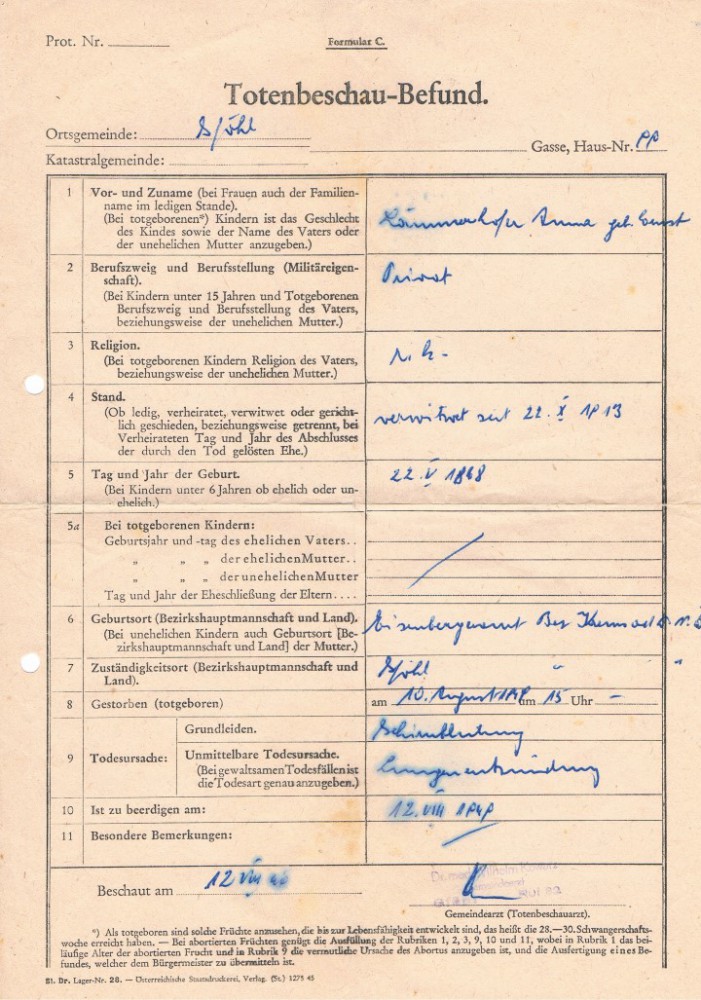 Prot. Nr.
Formular C.
Totenbeschau-Befund.
Ortsgemeinde: Gföhl
Gasse, Haus-Nr.
Katastralgemeinde:
1 Vor- und Zuname (bei Frauen auch der Familien-
name im ledigen Stande).
(Bei totgeborenen*) Kindern ist das Geschlecht
des Kindes sowie der Name des Vaters oder
der unehelichen Mutter anzugeben.)
Anna geb. Ernst
2 Berufszweig und Berufsstellung (Militäreigen-
schaft).
(Bei Kindern unter 15 Jahren und Totgeborenen
Berufszweig und Berufsstellung des Vaters,
beziehungsweise der unehelichen Mutter.)
Privat
3 Religion.
(Bei totgeborenen Kindern Religion des Vaters,
beziehungsweise der unehelichen Mutter.)
r. k.
4 Stand.
(Ob ledig, verheiratet, verwitwet oder gericht-
lich geschieden, beziehungsweise getrennt, bei
Verheirateten Tag und Jahr des Abschlusses
der durch den Tod gelösten Ehe.)
verwitwet seit 22. X 1913
5 Tag und Jahr der Geburt.
(Bei Kindern unter 6 Jahren ob ehelich oder un-
ehelich.)
22. V 1868
5a Bei totgeborenen Kindern:
Geburtsjahr und -tag des ehelichen Vaters..
„ „ „ der ehelichen Mutter..
„ „ „ der unehelichen Mutter
Tag und Jahr der Eheschließung der Eltern....
6 Geburtsort (Bezirkshauptmannschaft und Land).
(Bei unehelichen Kindern auch Geburtsort [Be-
zirkshauptmannschaft und Land] der Mutter.)
Eisenbergeramt Bez Krems a d D. N.
7 Zuständigkeitsort (Bezirkshauptmannschaft und
Land).
Gföhl " "
8 Gestorben (totgeboren)
am 10. August um 15 Uhr –
9 Todesursache:
Grundleiden.
Gehirnblutung
Unmittelbare Todesursache.
(Bei gewaltsamen Todesfällen ist
die Todesart genau anzugeben.)
Lungenentzündung
10 Ist zu beerdigen am:
12. VIII
11 Besondere Bemerkungen:
Beschaut am 12 VIII
Dr. med. Wilhelm
Gemeindearzt (Totenbeschauarzt).
*) Als totgeboren sind solche Früchte anzusehen, die bis zur Lebensfähigkeit entwickelt sind, das heißt die 28.—30. Schwangerschafts-
woche erreicht haben. — Bei abortierten Früchten genügt die Ausfüllung der Rubriken 1, 2, 3, 9, 10 und 11, wobei in Rubrik 1 das bei-
läufige Alter der abortierten Frucht und in Rubrik 9 die vermutliche Ursache des Abortus anzugeben ist, und die Ausfertigung eines Be-
fundes, welcher dem Bürgermeister zu übermitteln ist.
St. Dr. Lager-Nr. 26. — Österreichische Staatsdruckerei, Verlag. (St.) 1275 45